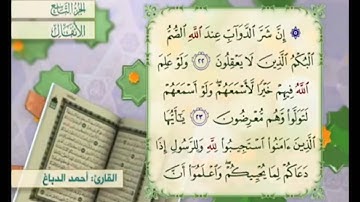 الجزء التاسع
الأنفال
۞ إِنَّ شَرَّ ٱلدَّوَآبِّ عِندَ ٱللَّهِ ٱلصُّمُّ
ٱلْبُكْمُ ٱلَّذِينَ لَا يَعْقِلُونَ ٢٢ وَلَوْ عَلِمَ
ٱللَّهُ فِيهِمْ خَيْرًا لَّأَسْمَعَهُمْ وَلَوْ أَسْمَعَهُمْ
لَتَوَلَّوا۟ وَّهُم مُّعْرِضُونَ ٢٣ يَـٰٓأَيُّهَا
ٱلَّذِينَ ءَامَنُوا۟ ٱسْتَجِيبُوا۟ لِلَّهِ وَلِلرَّسُولِ إِذَا
دَعَاكُمْ لِمَا يُحْيِيكُمْ وَٱعْلَمُوٓا۟ أَنَّ
القارئ: أحمد الدباغ